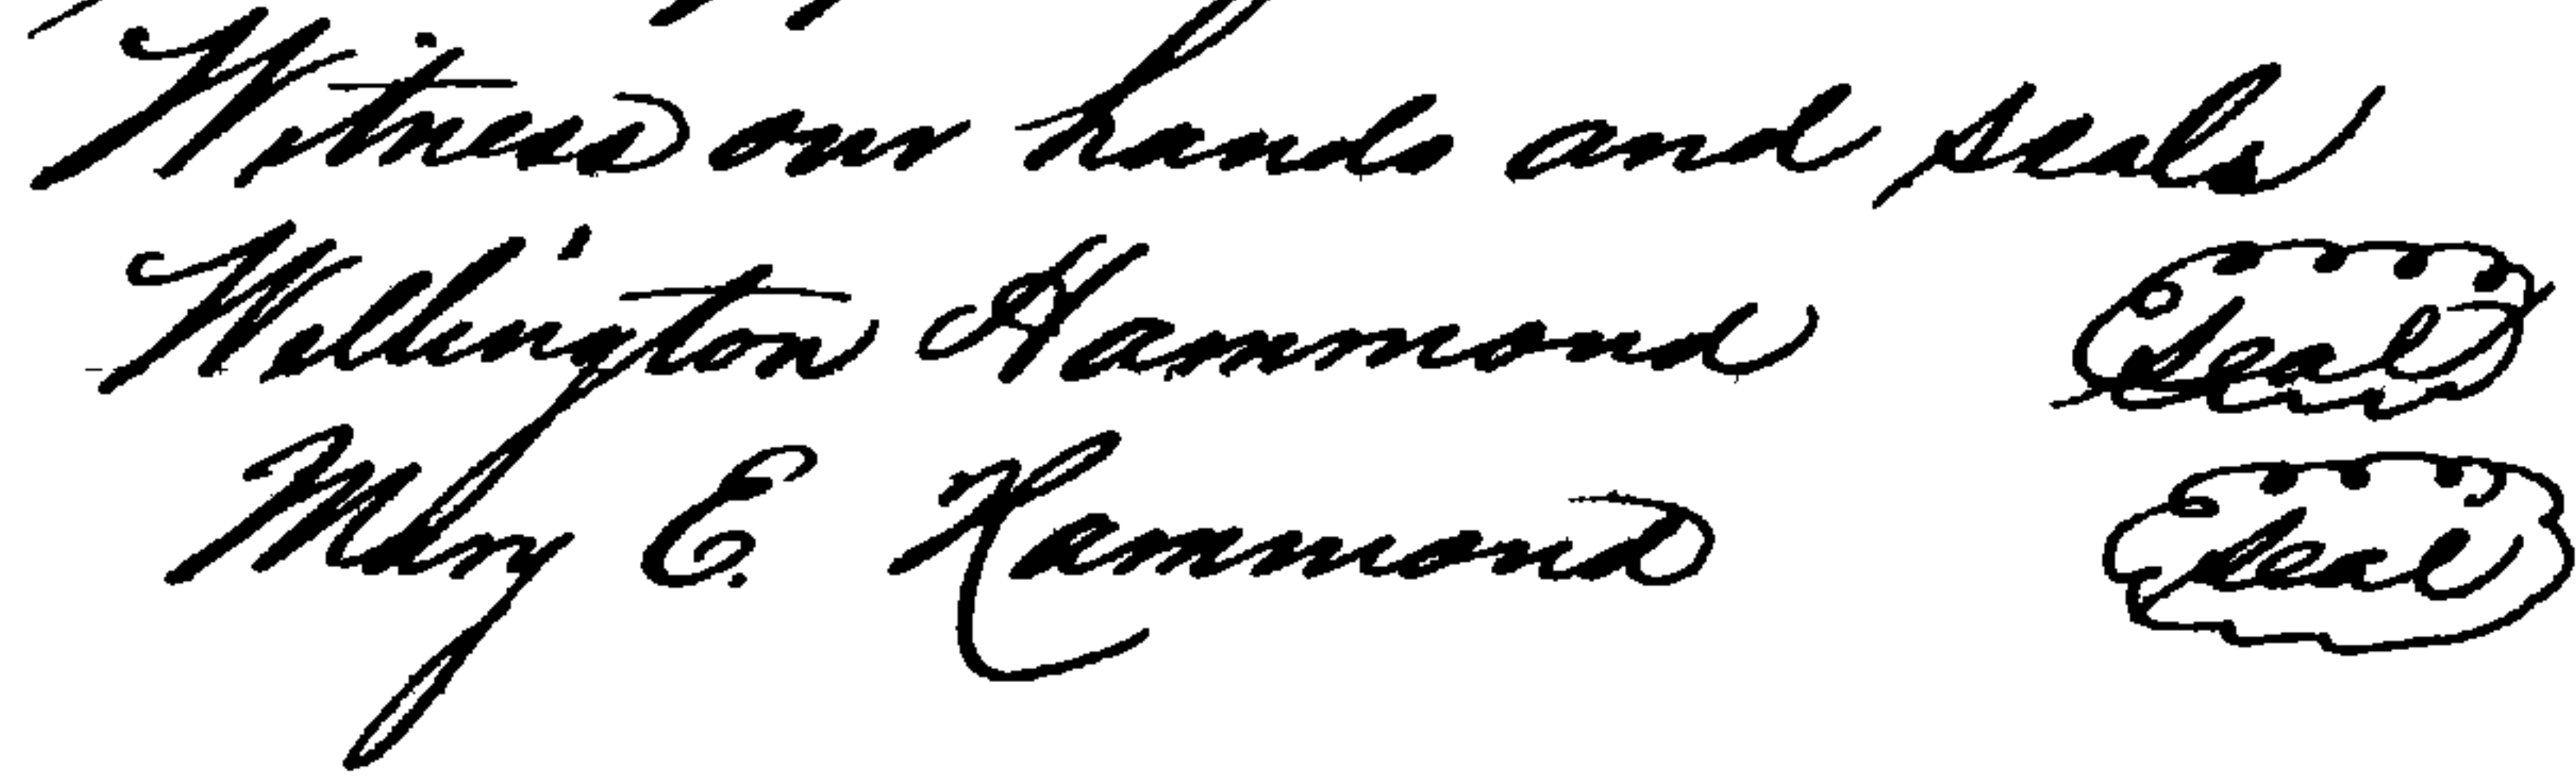 Witness our hands and seals
Wellington Hammond Seal
Mary E. Hammond Seal